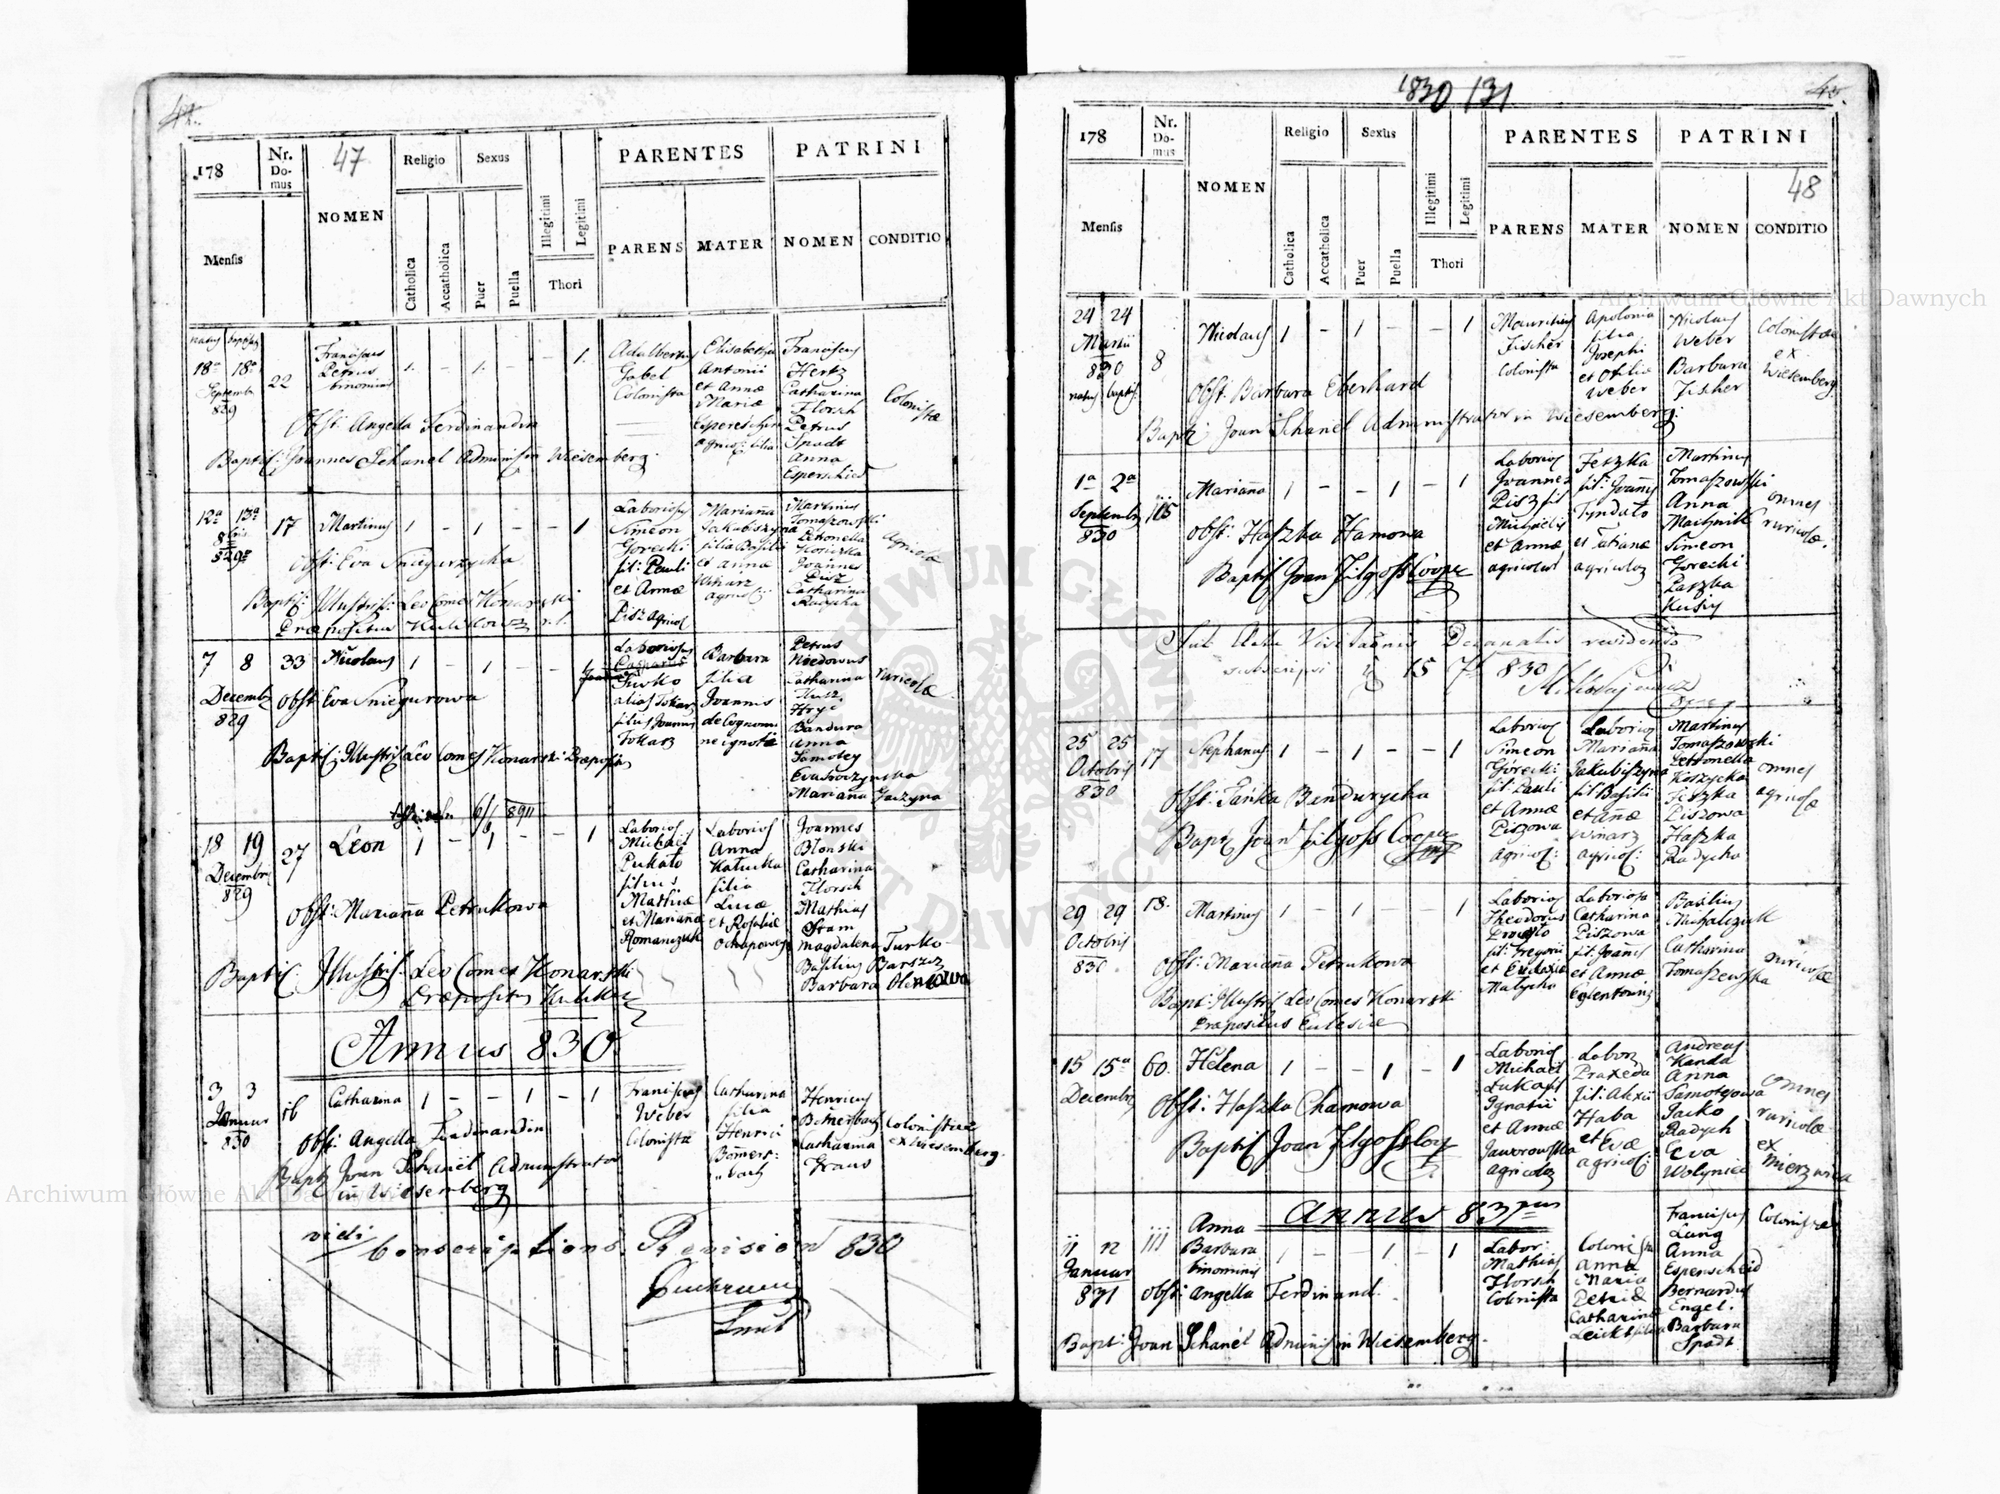 44.
47
178
Nr. Domus
NOMEN
Religio
Sexus
PARENTES
PATRINI
Mensis
Catholica
Accatholica
Puer
Puella
Illegitimi
Legitimi
Thori
PARENS
MATER
NOMEN
CONDITIO
natus
18a 18a
Septembr
829
22
Franciscus
Petrus
binominis
1. - 1. - - 1.
Adalbertus
Gabel
Colonista
Elisabetha
Antonii
et Annæ
Mariæ
filia
Franciscus
Hertz
Catharina
Florsch
Petrus
Spadt
Anna
Esperschied
Colonistæ
Obst: Angella Ferdinandin
Baptis: Joannes Schanel Administ: Wiesemberg.
12a 13a
8bris
829
17
Martinus
1 - 1 - - 1
Laboriosus
Simeon
Gorecki
fil: Pauli
et Annæ
Pisz Agricol
Marianna
Jakubiszyna
filia Basilii
et Annæ
Winarz
agricol:
Martinus
Tomaszowski
Petronella
Joannes
Pisz
Catharina
Radycha
Agricolæ
Obst: Eva Sniegurzycha
Baptis: Illustris: Leo Comes Konarski
Præpositus
7 8
Decembr
829
33
Nicolaus
1 - 1 - -
Laboriosus
alias Tokarz
filius Joannis
Tokarz
Barbara
filia
Joannis
de Cognomi
ne ignoto
Petrus
Niedowus
Catharina
Husz
Hryć
Bandura
Anna
Samotey
Marianna Jaczyna
ruricolæ
Obst: Eva Sniegurowa
Baptis: Illustris Leo Comes Konarski Præposit
18 19
Decembris
829
27
Leon
1 - 1 - - 1
Laborios
Michael
Pukało
filius
Mathiæ
et Mariannæ
Romanczuk
Laborios
Anna
filia
Lucæ
et Rosaliæ
Joannes
Blonski
Catharina
Florsch
Mathias
Sram
Magdalena Turko
Basilius Barszcz
Barbara
Obst: Marianna Petrukowa
Baptis: Illustris: Leo Comes Konarski
Præpositus
Annus 830.
3 3
Januar
830
16
Catharina
1 - - 1 - 1
Franciscus
Weber
Colonista
Catharina
filia
Henrici
Bömers-
bach
Henricus
Bömerbach
Catharina
Graus
Colonistæ
ex Wiesemberg.
Obst: Angella Ferdinandin
Baptis Joan Schanel Administrator
in Wiesemberg
vidi
Conscriptions Revision 830
1830/31
45.
48
178
Nr. Domus
NOMEN
Religio
Sexus
PARENTES
PATRINI
Mensis
Catholica
Accatholica
Puer
Puella
Illegitimi
Legitimi
Thori
PARENS
MATER
NOMEN
CONDITIO
24 24
Martii
830
natus baptis
8
Nicolaus
1 - 1 - - 1
Mauritius
Fischer
Colonista
Apolonia
filia
Josephi
et Otiliæ
Weber
Nicolaus
Weber
Barbara
Fischer
Colonistæ
ex
Wiesemberg
Obst: Barbara Eberhard
Bapti: Joan Schanel Administrator in Wiesemberg.
1a 2a
Septembr
830
Marianna
1 - - 1 - 1
Laborios
Joannes
Pisz fil
Michaelis
et Annæ
agricolæ
Feszka
fil: Joannis
Tyndało
et Tatianæ
agricolæ
Martinus
Tomaszowski
Anna
Simeon
Gorecki
Paszka
Kusiy
omnes
ruricolæ.
Obst: Haszka Hamowa
Baptis Joan Filgoss Coop
In Actu Visitationis Decanalis
subscripsi 15 7b 830
25 25
Octobris
830
17
Stephanus
1 - 1 - - 1
Laborios
Simeon
Gorecki
fil: Pauli
et Annæ
Piszowa
agricol:
Laborios
Marianna
Jakubiszyna
fil: Basilii
et Anæ
Winarz
agricol:
Martinus
Tomaszowski
Petronella
Koszycka
Feszka
Piszowa
Haszka
Radycho
omnes
agricolæ
Obst: Pańka Bendurycha
Bapt: Joan Filgoss Coop
29 29
Octobris
830
18.
Martinus
1 - 1 - - 1
Laborios
Theodorus
fil: Gregorii
et Eudoxiæ
Matycho
Laboriosa
Catharina
Piszowa
fil: Joannis
et Annæ
Basilius
Michalczuk
Catharina
Tomaszewska
ruricolæ
Obst: Marianna Petrukowa
Bapt: Illustris Leo Comes Konarski
Præpositus Eclesiæ
15 15a
Decembr
60.
Helena
1 - - 1 - 1
Laborios
Michael
Łukasz
Ignatii
et Annæ
Jaworowska
agricolæ
Labor
Praxeda
fil: Alexii
Haba
et Evæ
agricol:
Andreas
Kanda
Anna
Samoteyowa
Jacko
Radych
Eva
omnes
ruricolæ
ex
Mierzwica
Obst: Haszka Chamowa
Baptis Joan Filgoss Coop
Annus 831
11 12
Januar
831
111
Anna
Barbara
binominis
1 - - 1 - 1
Labor:
Mathias
Florsch
Colonista
Anna
Maria
Petri &
Catharinæ
Franciscus
Lang
Anna
Espenscheid
Bernardus
Engel.
Barbara
Spadt
Colonistæ
Obst: Angella Ferdinand.
Bapt: Joan Schanel Adminis in Wiesemberg.
Archiwum Główne Akt Dawnych
Archiwum Główne Akt Dawnych
ARCHIWUM GŁÓWNE AKT DAWNYCH